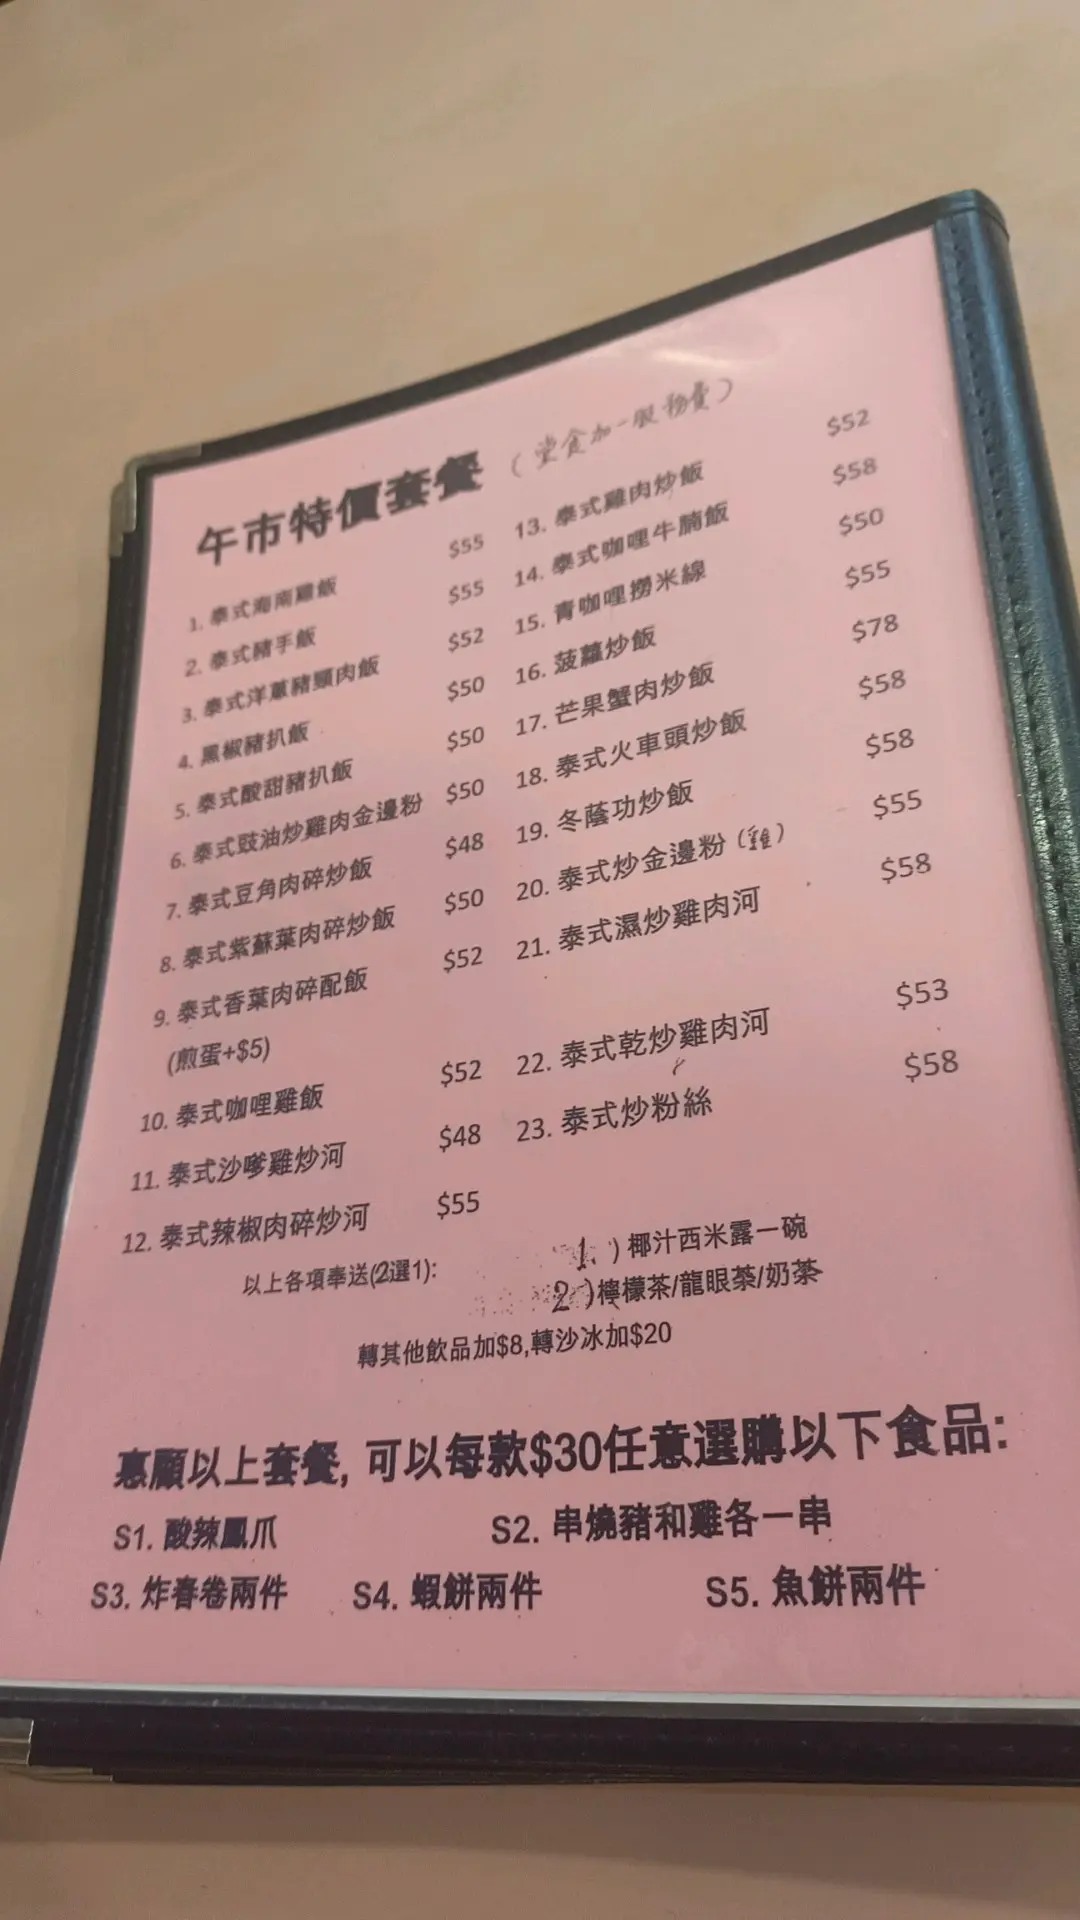 午市特價套餐 (堂食加一服務費)
1. 泰式海南雞飯 $55
2. 泰式豬手飯 $55
3. 泰式洋蔥豬頸肉飯 $52
4. 黑椒豬扒飯 $50
5. 泰式酸甜豬扒飯 $50
6. 泰式豉油炒雞肉金邊粉 $50
7. 泰式豆角肉碎炒飯 $48
8. 泰式紫蘇葉肉碎炒飯 $50
9. 泰式香葉肉碎配飯 $52
(煎蛋+$5)
10. 泰式咖哩雞飯 $52
11. 泰式沙嗲雞炒河 $48
12. 泰式辣椒肉碎炒河 $55
13. 泰式雞肉炒飯 $52
14. 泰式咖哩牛腩飯 $58
15. 青咖哩撈米線 $50
16. 菠蘿炒飯 $55
17. 芒果蟹肉炒飯 $78
18. 泰式火車頭炒飯 $58
19. 冬蔭功炒飯 $58
20. 泰式炒金邊粉 (雞) $55
21. 泰式濕炒雞肉河 $58
22. 泰式乾炒雞肉河 $53
23. 泰式炒粉絲 $58
以上各項奉送(2選1): 1.)椰汁西米露一碗
2)檸檬茶/龍眼茶/奶茶
轉其他飲品加$8,轉沙冰加$20
惠顧以上套餐, 可以每款$30任意選購以下食品:
S1. 酸辣鳳爪 S2. 串燒豬和雞各一串
S3. 炸春卷兩件 S4. 蝦餅兩件 S5. 魚餅兩件